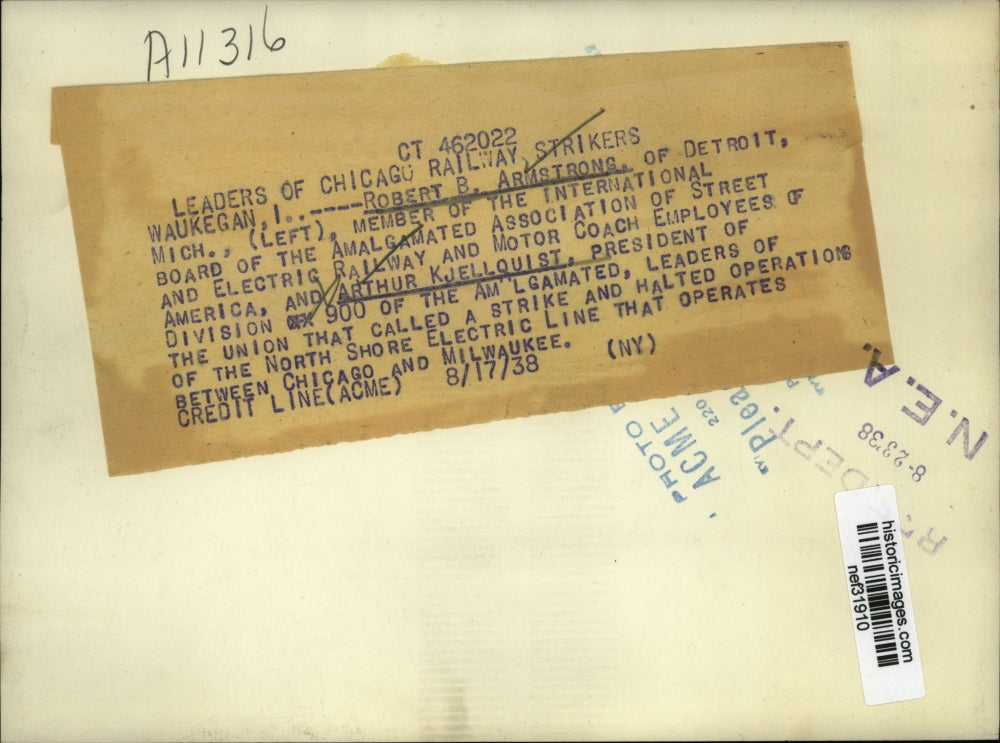 A11316
CT 462022
LEADERS OF CHICAGO RAILWAY STRIKERS
WAUKEGAN, I..-----ROBERT B. ARMSTRONG, OF DETROIT,
MICH., (LEFT), MEMBER OF THE INTERNATIONAL
BOARD OF THE AMALGAMATED ASSOCIATION OF STREET
AND ELECTRIC RAILWAY AND MOTOR COACH EMPLOYEES OF
AMERICA, AND ARTHUR KJELLQUIST, PRESIDENT OF
DIVISION 900 OF THE AM'LGAMATED, LEADERS OF
THE UNION THAT CALLED A STRIKE AND HALTED OPERATIONS
OF THE NORTH SHORE ELECTRIC LINE THAT OPERATES
BETWEEN CHICAGO AND MILWAUKEE. (NY)
CREDIT LINE(ACME) 8/17/38
PHOTO
ACME
220
BY
N.E.A.
8-23'38
DEPT.
historicimages.com
nef31910